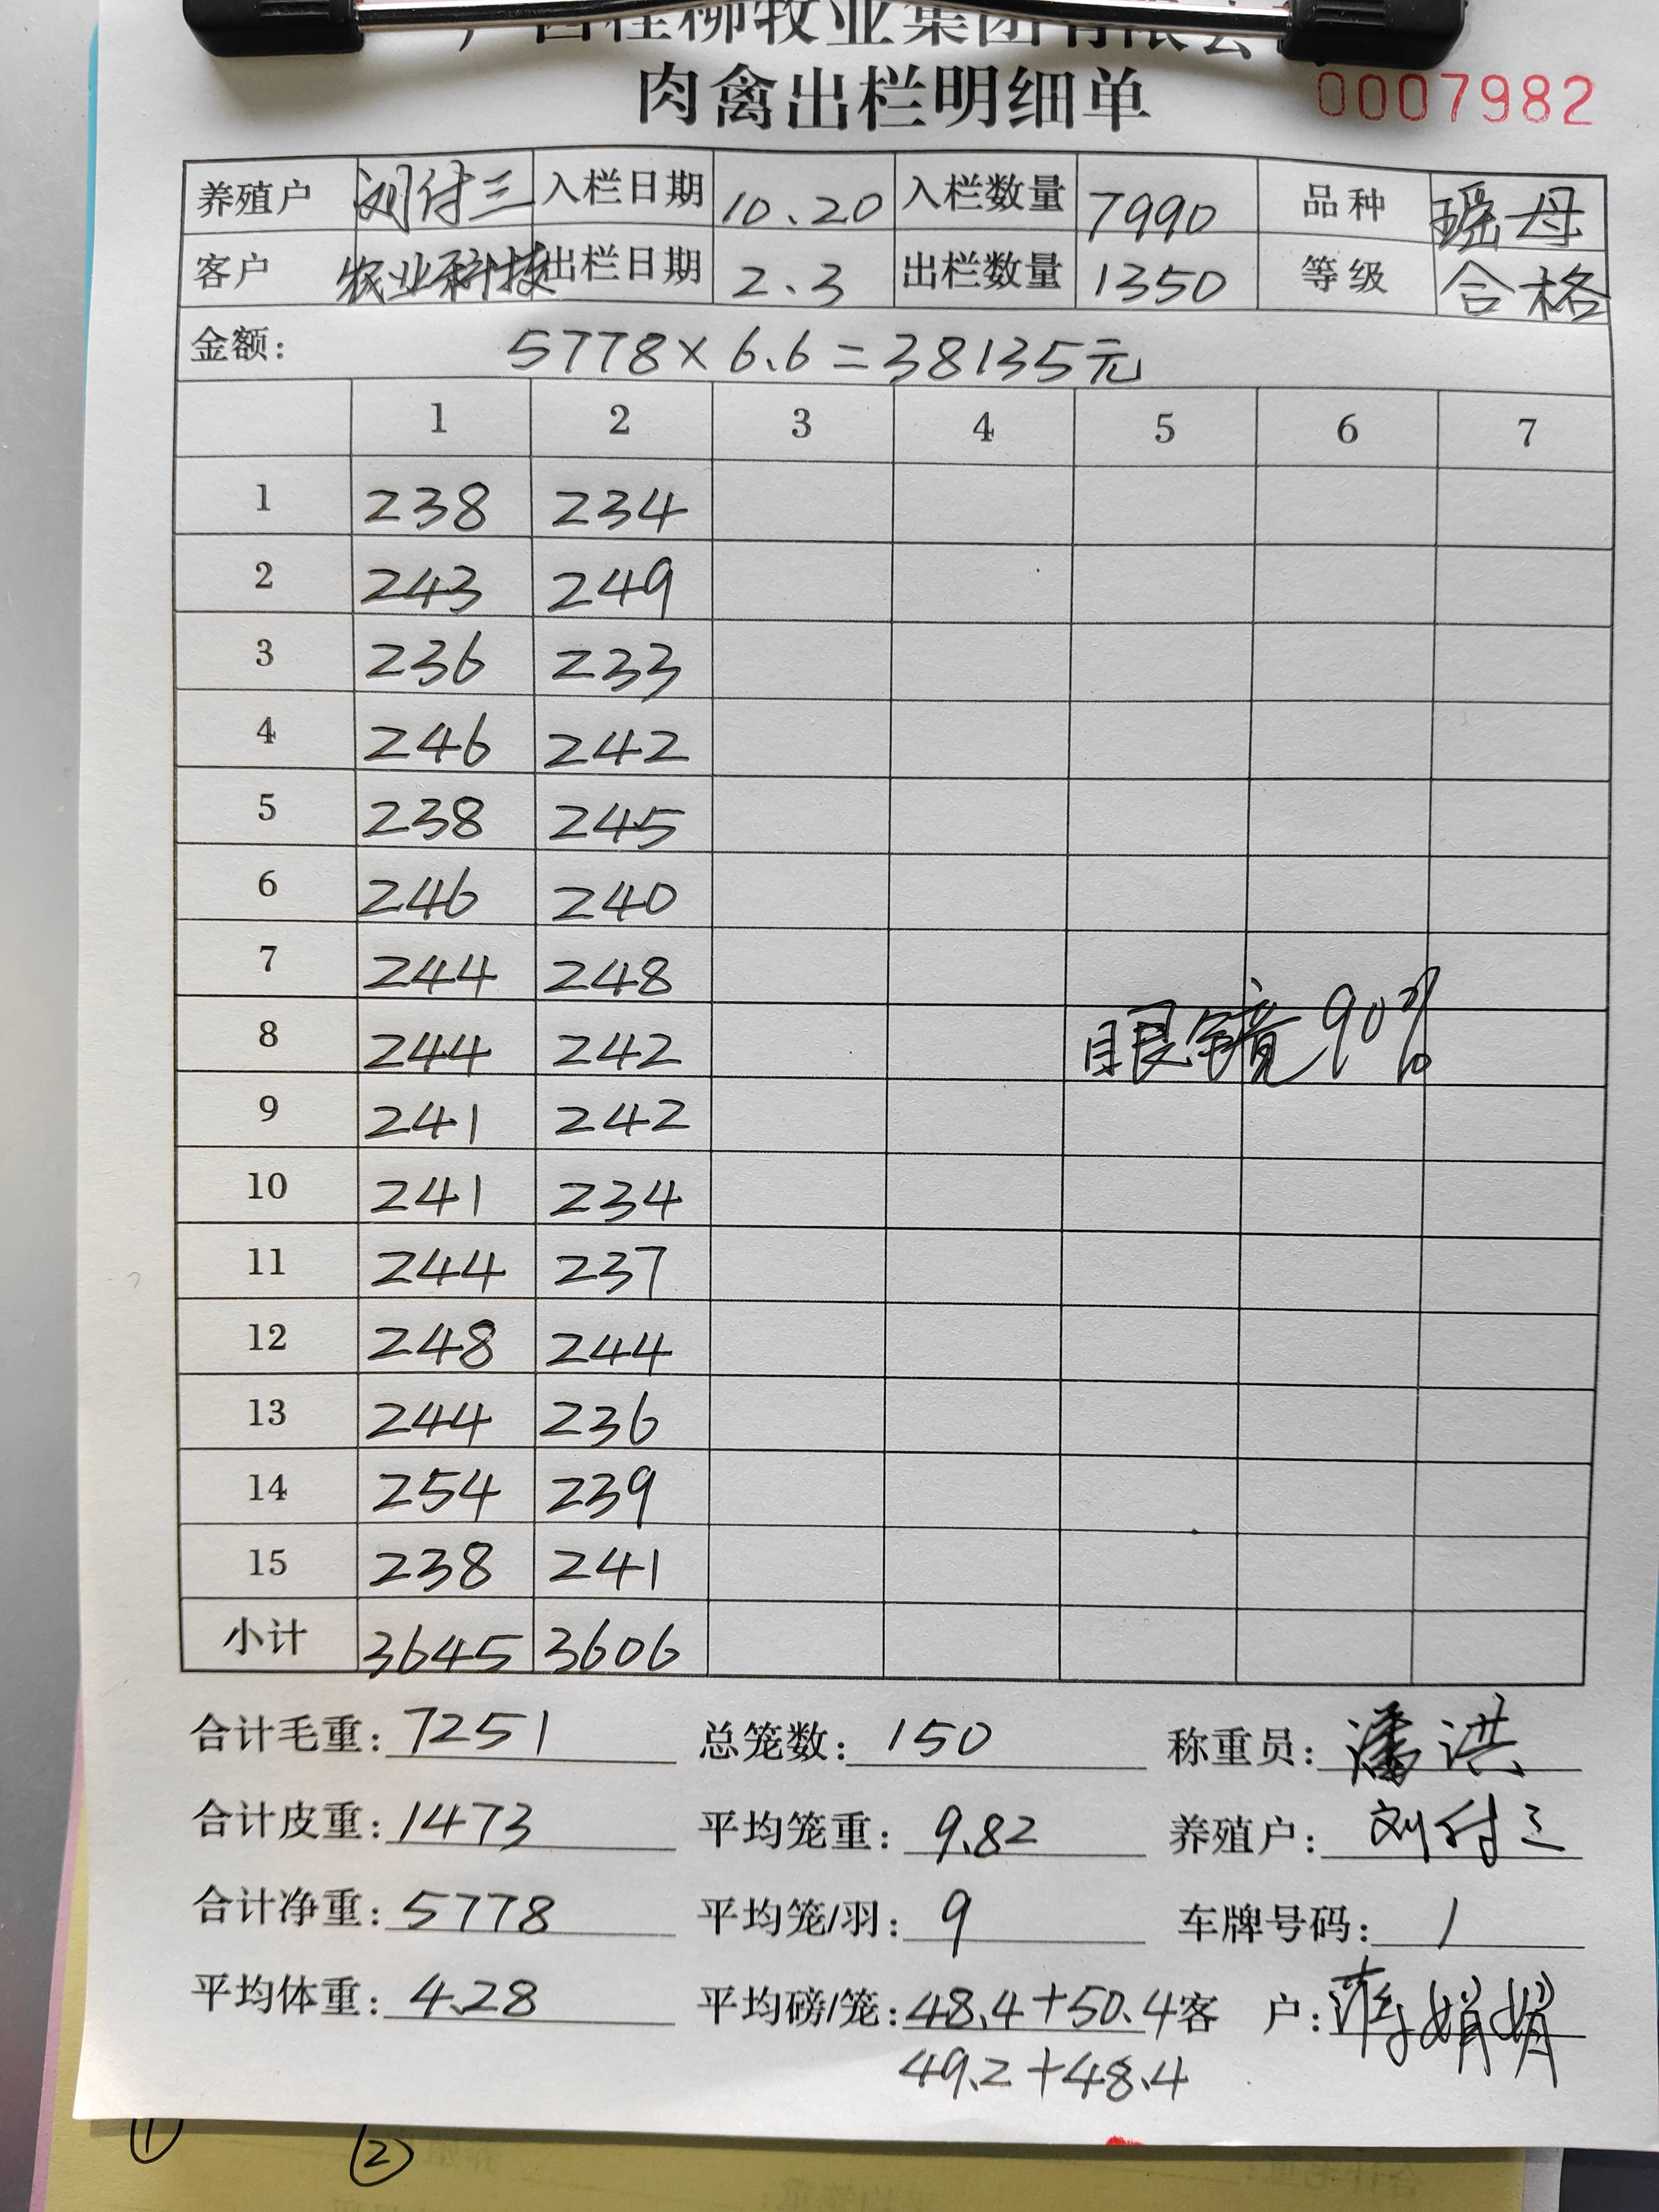 广西桂柳牧业集团有限公
肉禽出栏明细单 0007982
养殖户 刘付三 入栏日期 10.20 入栏数量 7990 品种 瑶母
客户 农业科技 出栏日期 2.3 出栏数量 1350 等级 合格
金额: 5778×6.6=38135元
1 2 3 4 5 6 7
1 238 234
2 243 249
3 236 233
4 246 242
5 238 245
6 246 240
7 244 248
8 244 242 眼镜90%
9 241 242
10 241 234
11 244 237
12 248 244
13 244 236
14 254 239
15 238 241
小计 3645 3606
合计毛重: 7251 总笼数: 150 称重员: 潘洪
合计皮重: 1473 平均笼重: 9.82 养殖户: 刘付三
合计净重: 5778 平均笼/羽: 9 车牌号码: 1
平均体重: 4.28 平均磅/笼: 48.4+50.4 客 户: 蒋娟娟
49.2+48.4
① ②